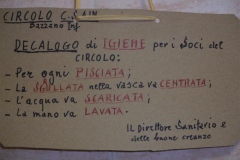 CIRCOLO C. AIN
Bazzano Inf.
DECALOGO di IGIENE per i Soci del
CIRCOLO:
- Per ogni PISCIATA;
- La SGRULLATA nella vasca va CENTRATA;
- L'acqua va SCARICATA;
- La mano va LAVATA.
Il Direttore Sanitario e
delle buone creanze